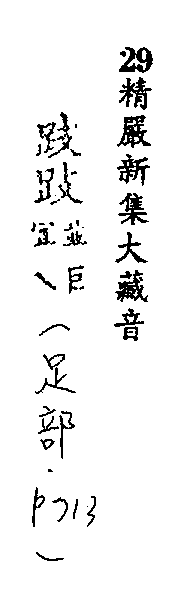 29精嚴新集大藏音
跂並巨宜乀(足部.p713)